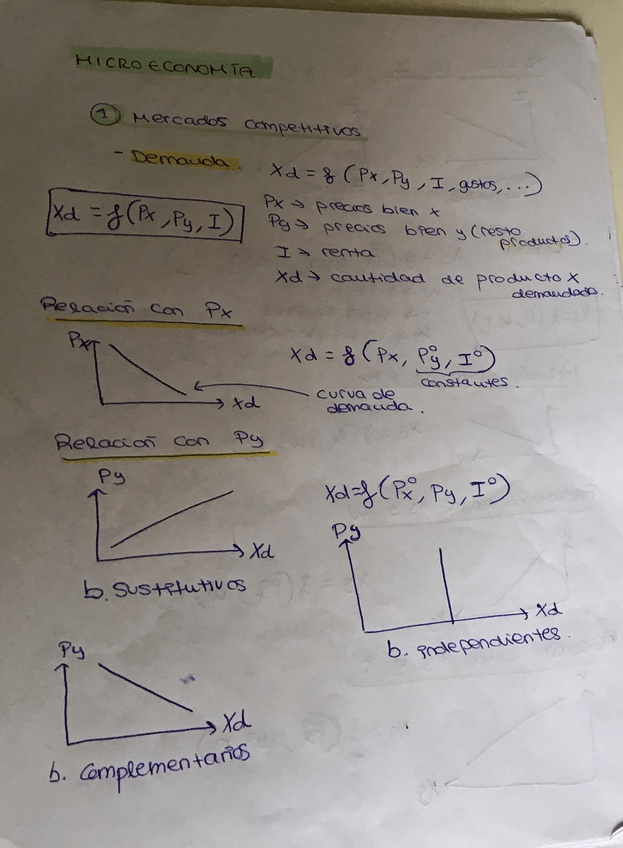 MICROECONOMÍA
① Mercados competitivos
- Demanda.
Xd = f (Px, Py, I, gustos, ...)
Xd = f (Px, Py, I)
Px → precios bien x
Py → precios bien y (resto
productos).
I → renta
Xd → cantidad de producto X
demandada.
Relación con Px
Px
Xd
Xd = f (Px, Py°, I°)
constantes.
curva de
demanda.
Relación con Py
Py
Xd
b. Sustitutivos
Xd = f (Px°, Py, I°)
Py
Xd
b. independientes.
Py
Xd
b. Complementarios